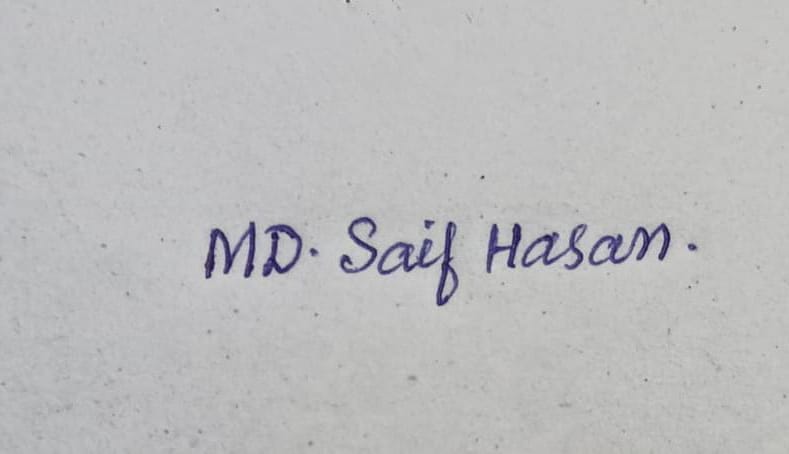 MD. Saif Hasan.